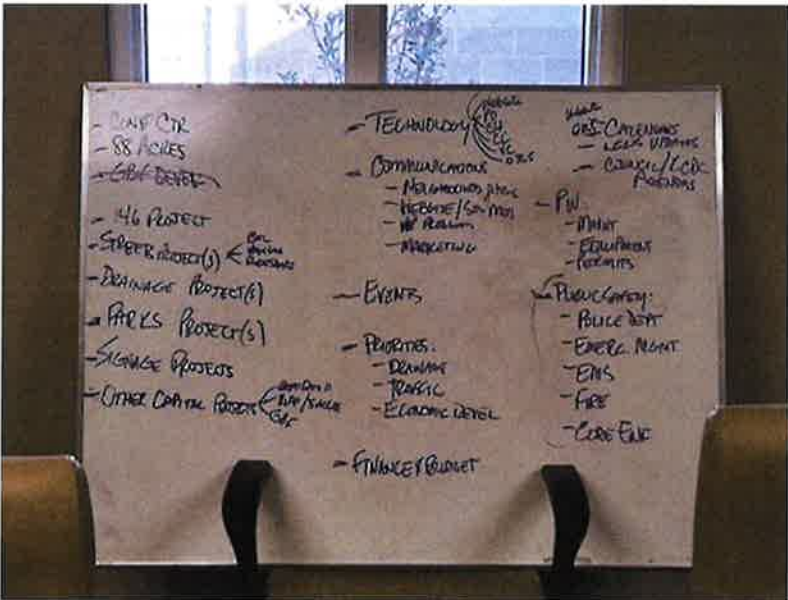 - CONF CTR
- 88 ACRES
- 146 PROJECT
- STREET PROJECT(S)
- DRAINAGE PROJECT(S)
- PARKS PROJECT(S)
- SIGNAGE PROJECTS
- OTHER CAPITAL PROJECTS
- TECHNOLOGY
WEBSITE
PD
CH
- COMMUNICATIONS
- WEBSITE/SOC MED
- MARKETING
- EVENTS
- PRIORITIES:
- DRAINAGE
- TRAFFIC
- ECONOMIC DEVEL
- FINANCE/BUDGET
CALENDARS
- LEGIS UPDATES
- COUNCIL/LCDC
AGENDAS
- PW
- MAINT
- EQUIPMENT
- PERMITS
- PUBLIC SAFETY:
- POLICE DEPT
- EMERG. MGMT
- EMS
- FIRE
- CODE ENF